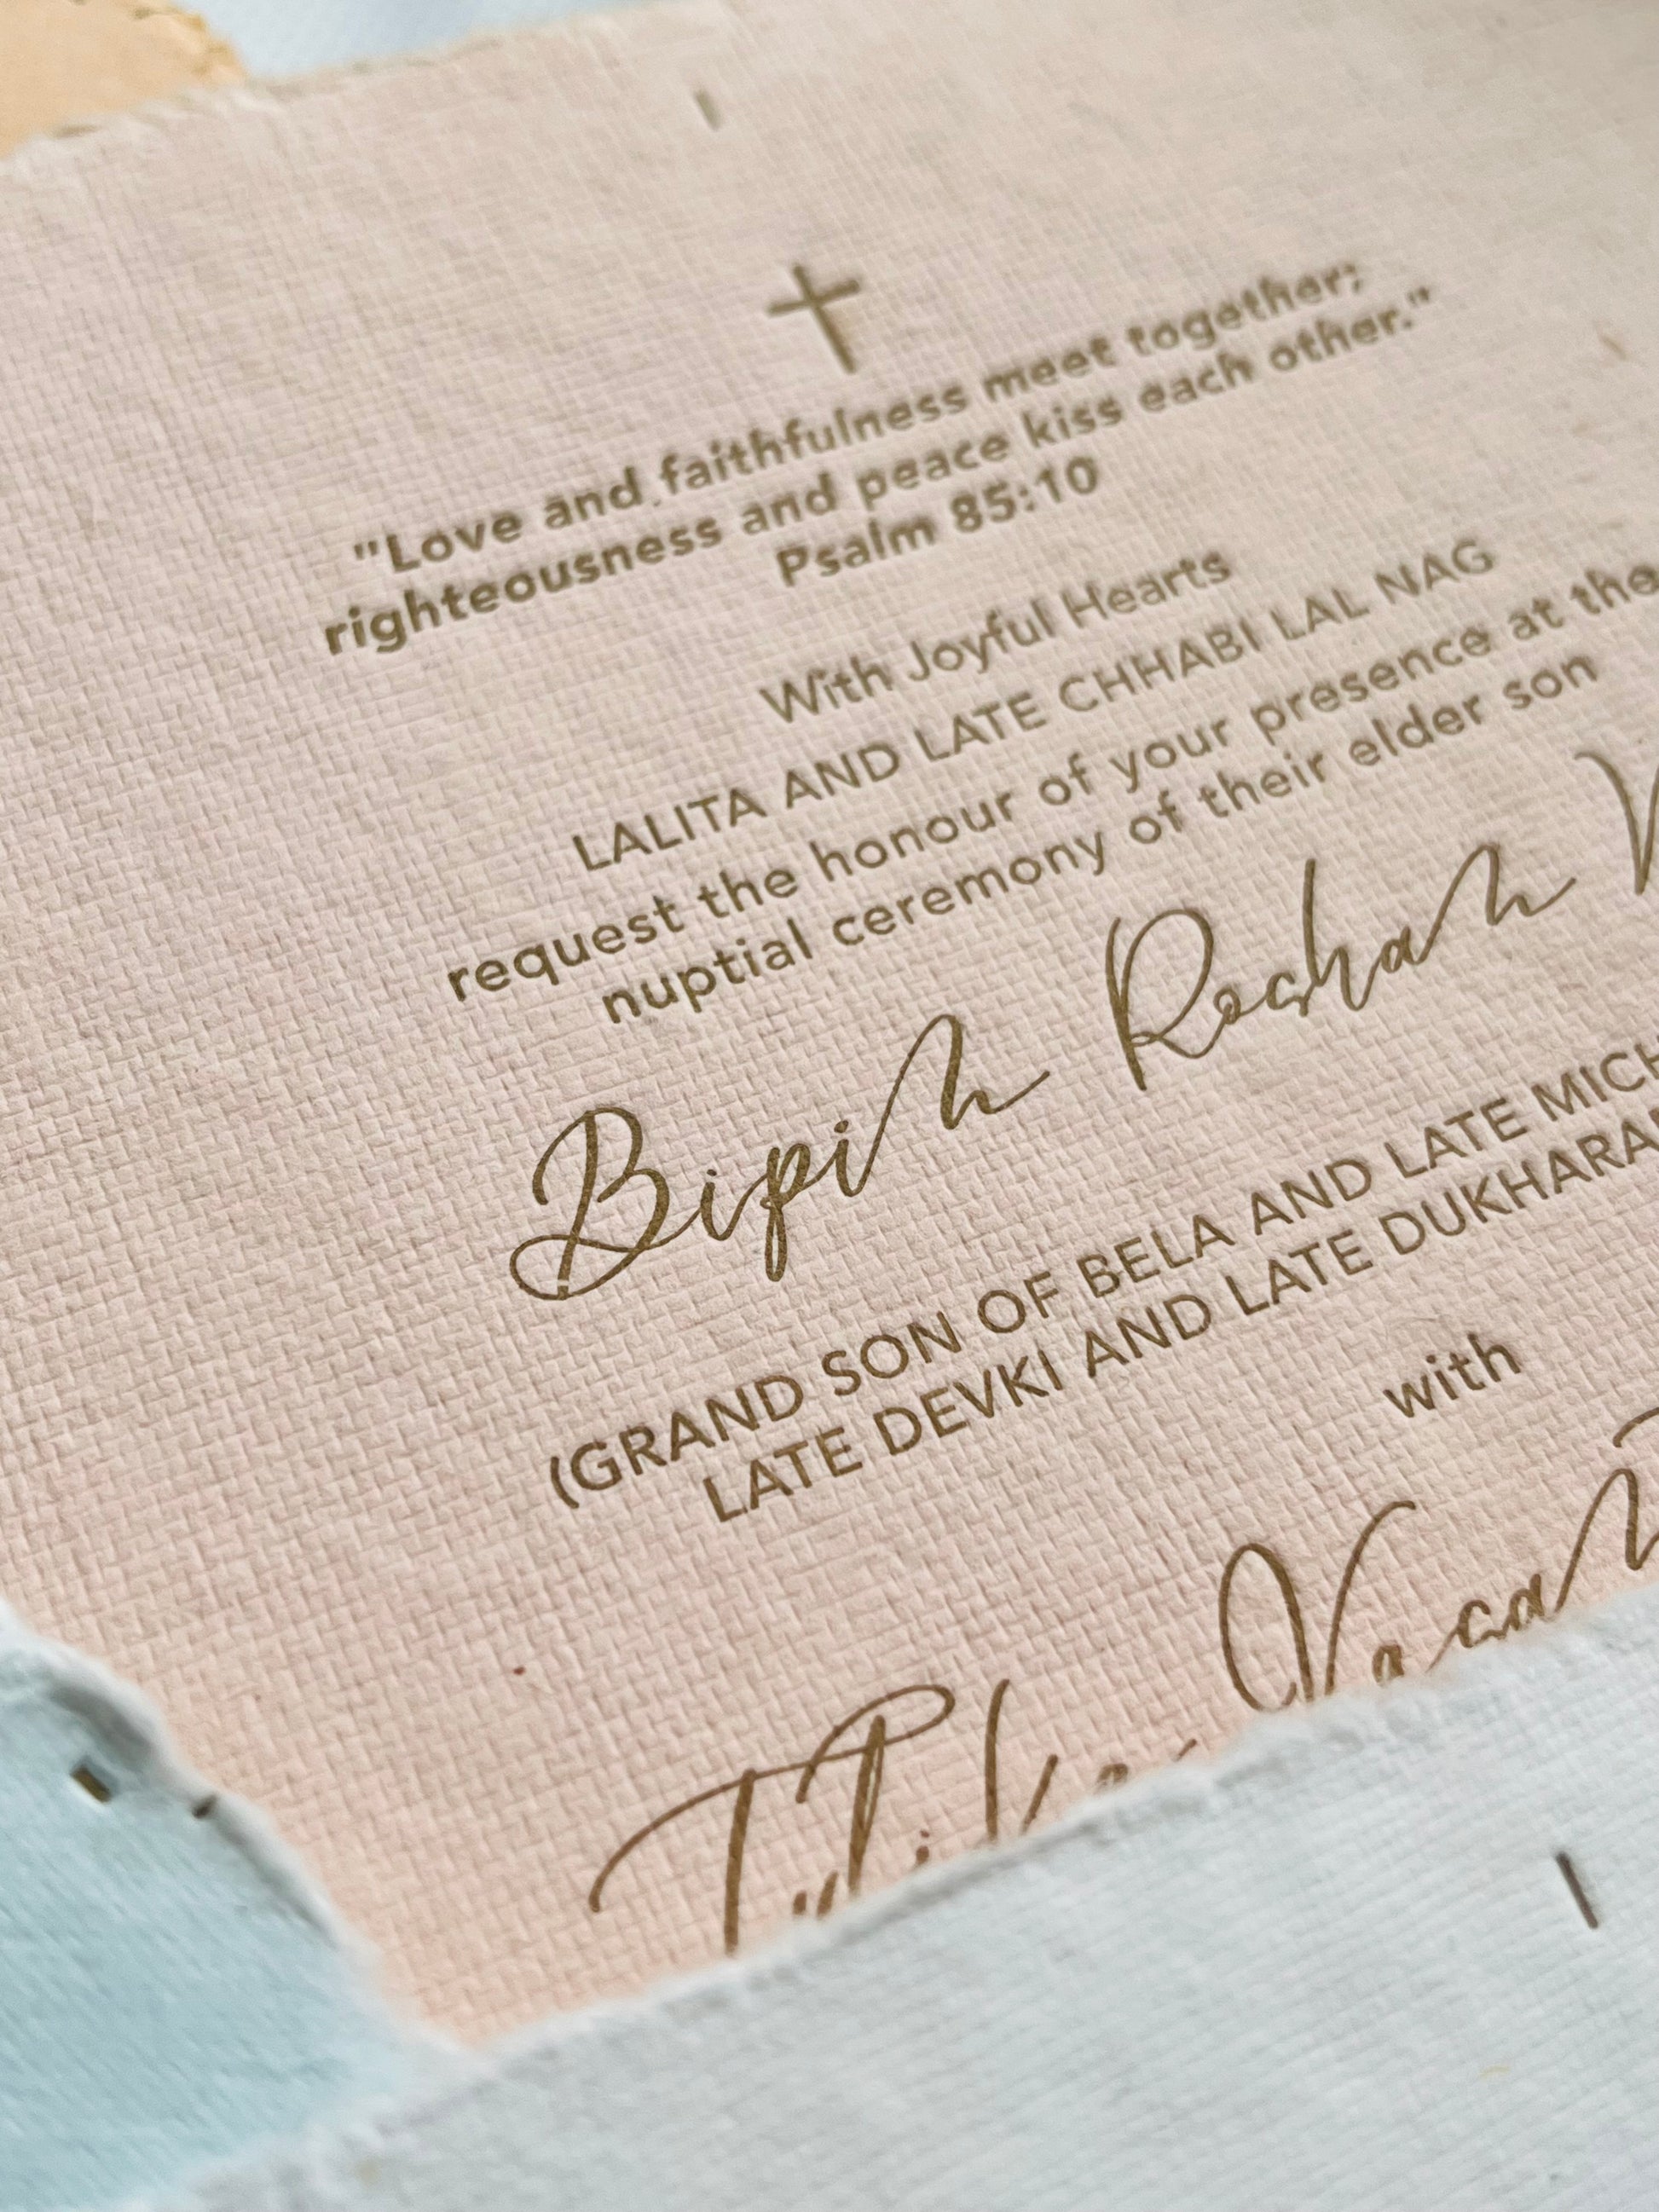 "Love and faithfulness meet together;
righteousness and peace kiss each other."
Psalm 85:10
With Joyful Hearts
LALITA AND LATE CHHABI LAL NAG
request the honour of your presence at the
nuptial ceremony of their elder son
Bipin Roshan
(GRAND SON OF BELA AND LATE
LATE DEVKI AND LATE
with